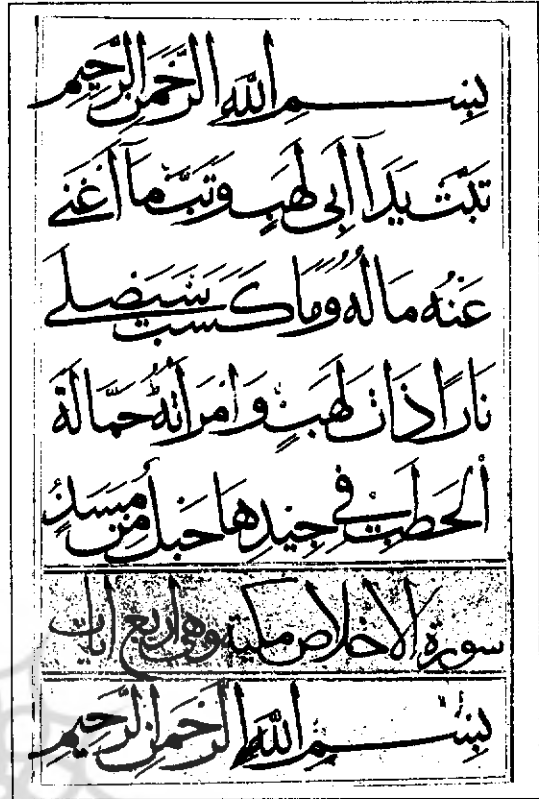 بِسْمِ اللّٰهِ الرَّحْمٰنِ الرَّحِيْمِ
تَبَّتْ يَدَا اَبِى لَهَبٍ وَتَبَّ مَآ اَغْنٰى
عَنْهُ مَالُهُ وَمَا كَسَبَ سَيَصْلٰى
نَارًا ذَاتَ لَهَبٍ وَامْرَاَتُهُ حَمَّالَةَ
الْحَطَبِ فِى جِيْدِهَا حَبْلٌ مِنْ مَسَدٍ
سورة الاخلاص مكية وهى اربع ايات
بِسْمِ اللّٰهِ الرَّحْمٰنِ الرَّحِيْمِ